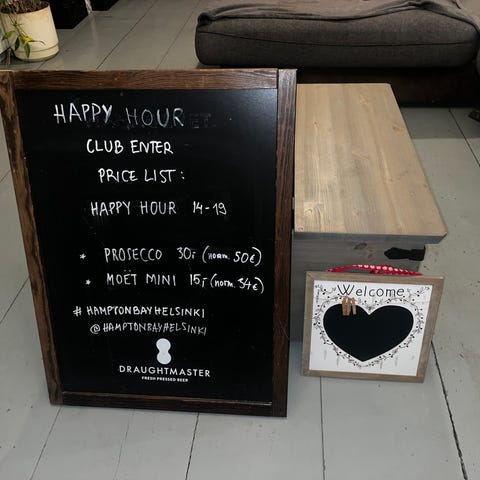 HAPPY HOUR
CLUB ENTER
PRICE LIST :
HAPPY HOUR 14-19
* PROSECCO 30,- (NORM. 50€)
* MOËT MINI 15,- (NORM. 34€)
# HAMPTONBAYHELSINKI
@ HAMPTONBAYHELSINKI
DRAUGHTMASTER
FRESH PRESSED BEER
Welcome